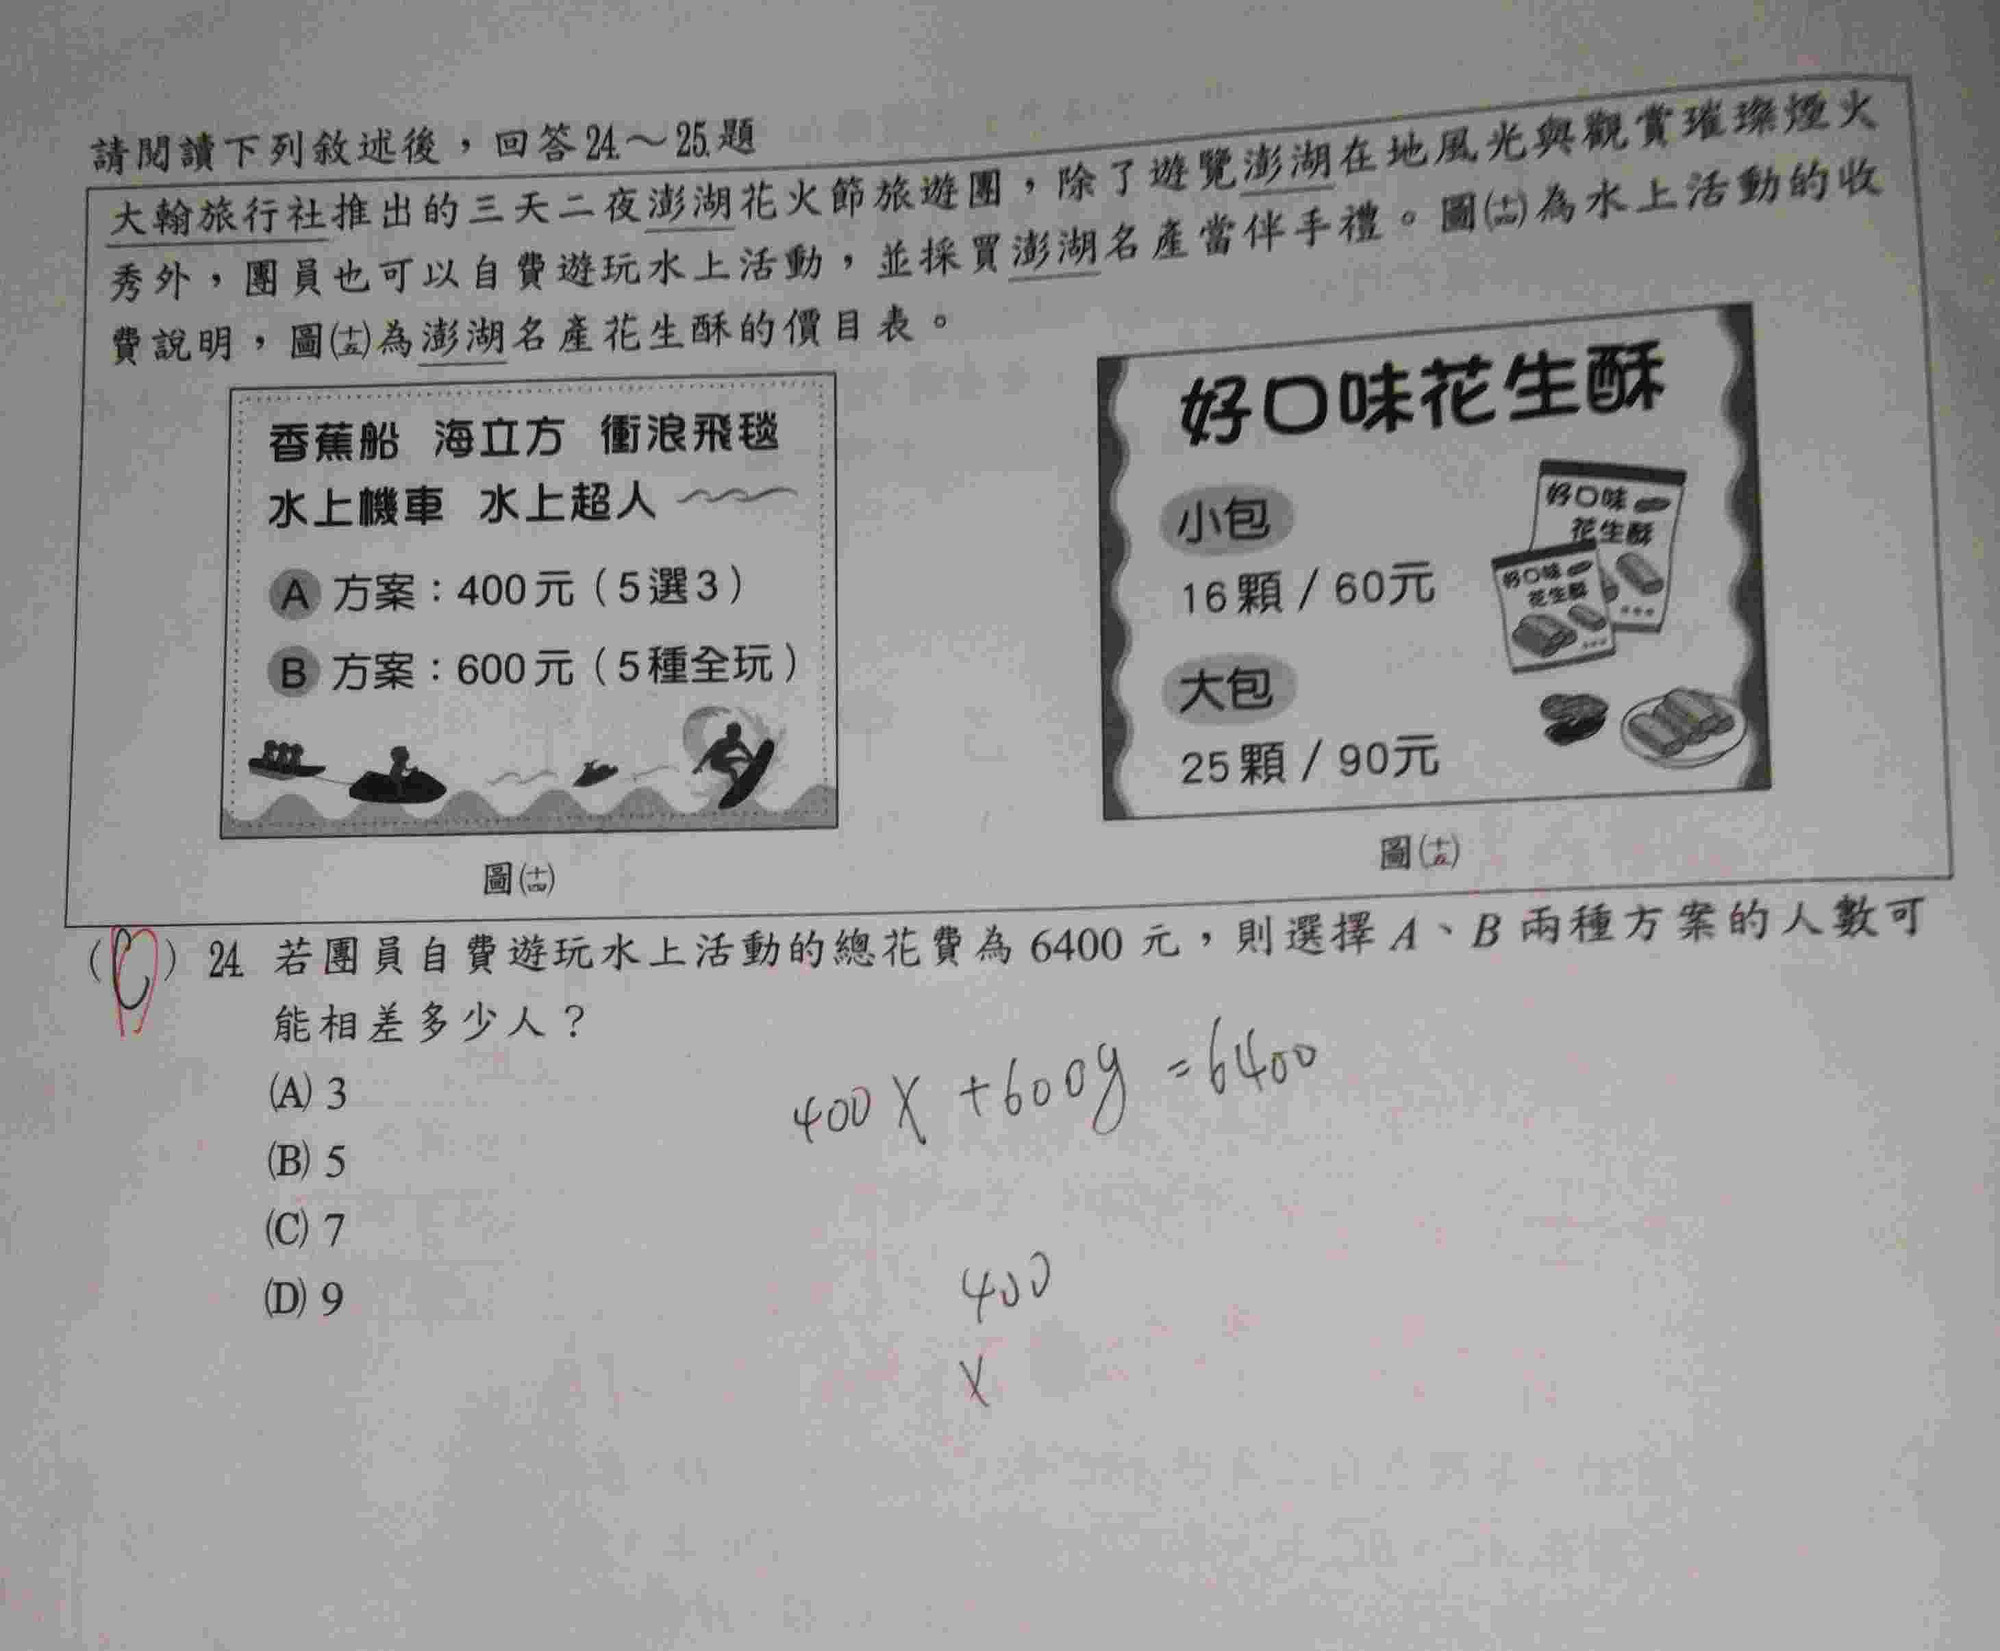 請閱讀下列敘述後，回答24.～25.題
大翰旅行社推出的三天二夜澎湖花火節旅遊團，除了遊覽澎湖在地風光與觀賞璀璨煙火
秀外，團員也可以自費遊玩水上活動，並採買澎湖名產當伴手禮。圖(十四)為水上活動的收
費說明，圖(十五)為澎湖名產花生酥的價目表。
香蕉船 海立方 衝浪飛毯
水上機車 水上超人
A 方案：400元（5選3）
B 方案：600元（5種全玩）
圖(十四)
好口味花生酥
小包
16顆 / 60元
大包
25顆 / 90元
好口味
花生酥
好口味
花生酥
圖(十五)
（C）24. 若團員自費遊玩水上活動的總花費為 6400 元，則選擇 A、B 兩種方案的人數可
能相差多少人？
(A) 3
(B) 5
(C) 7
(D) 9
400X + 600y = 6400
400
X